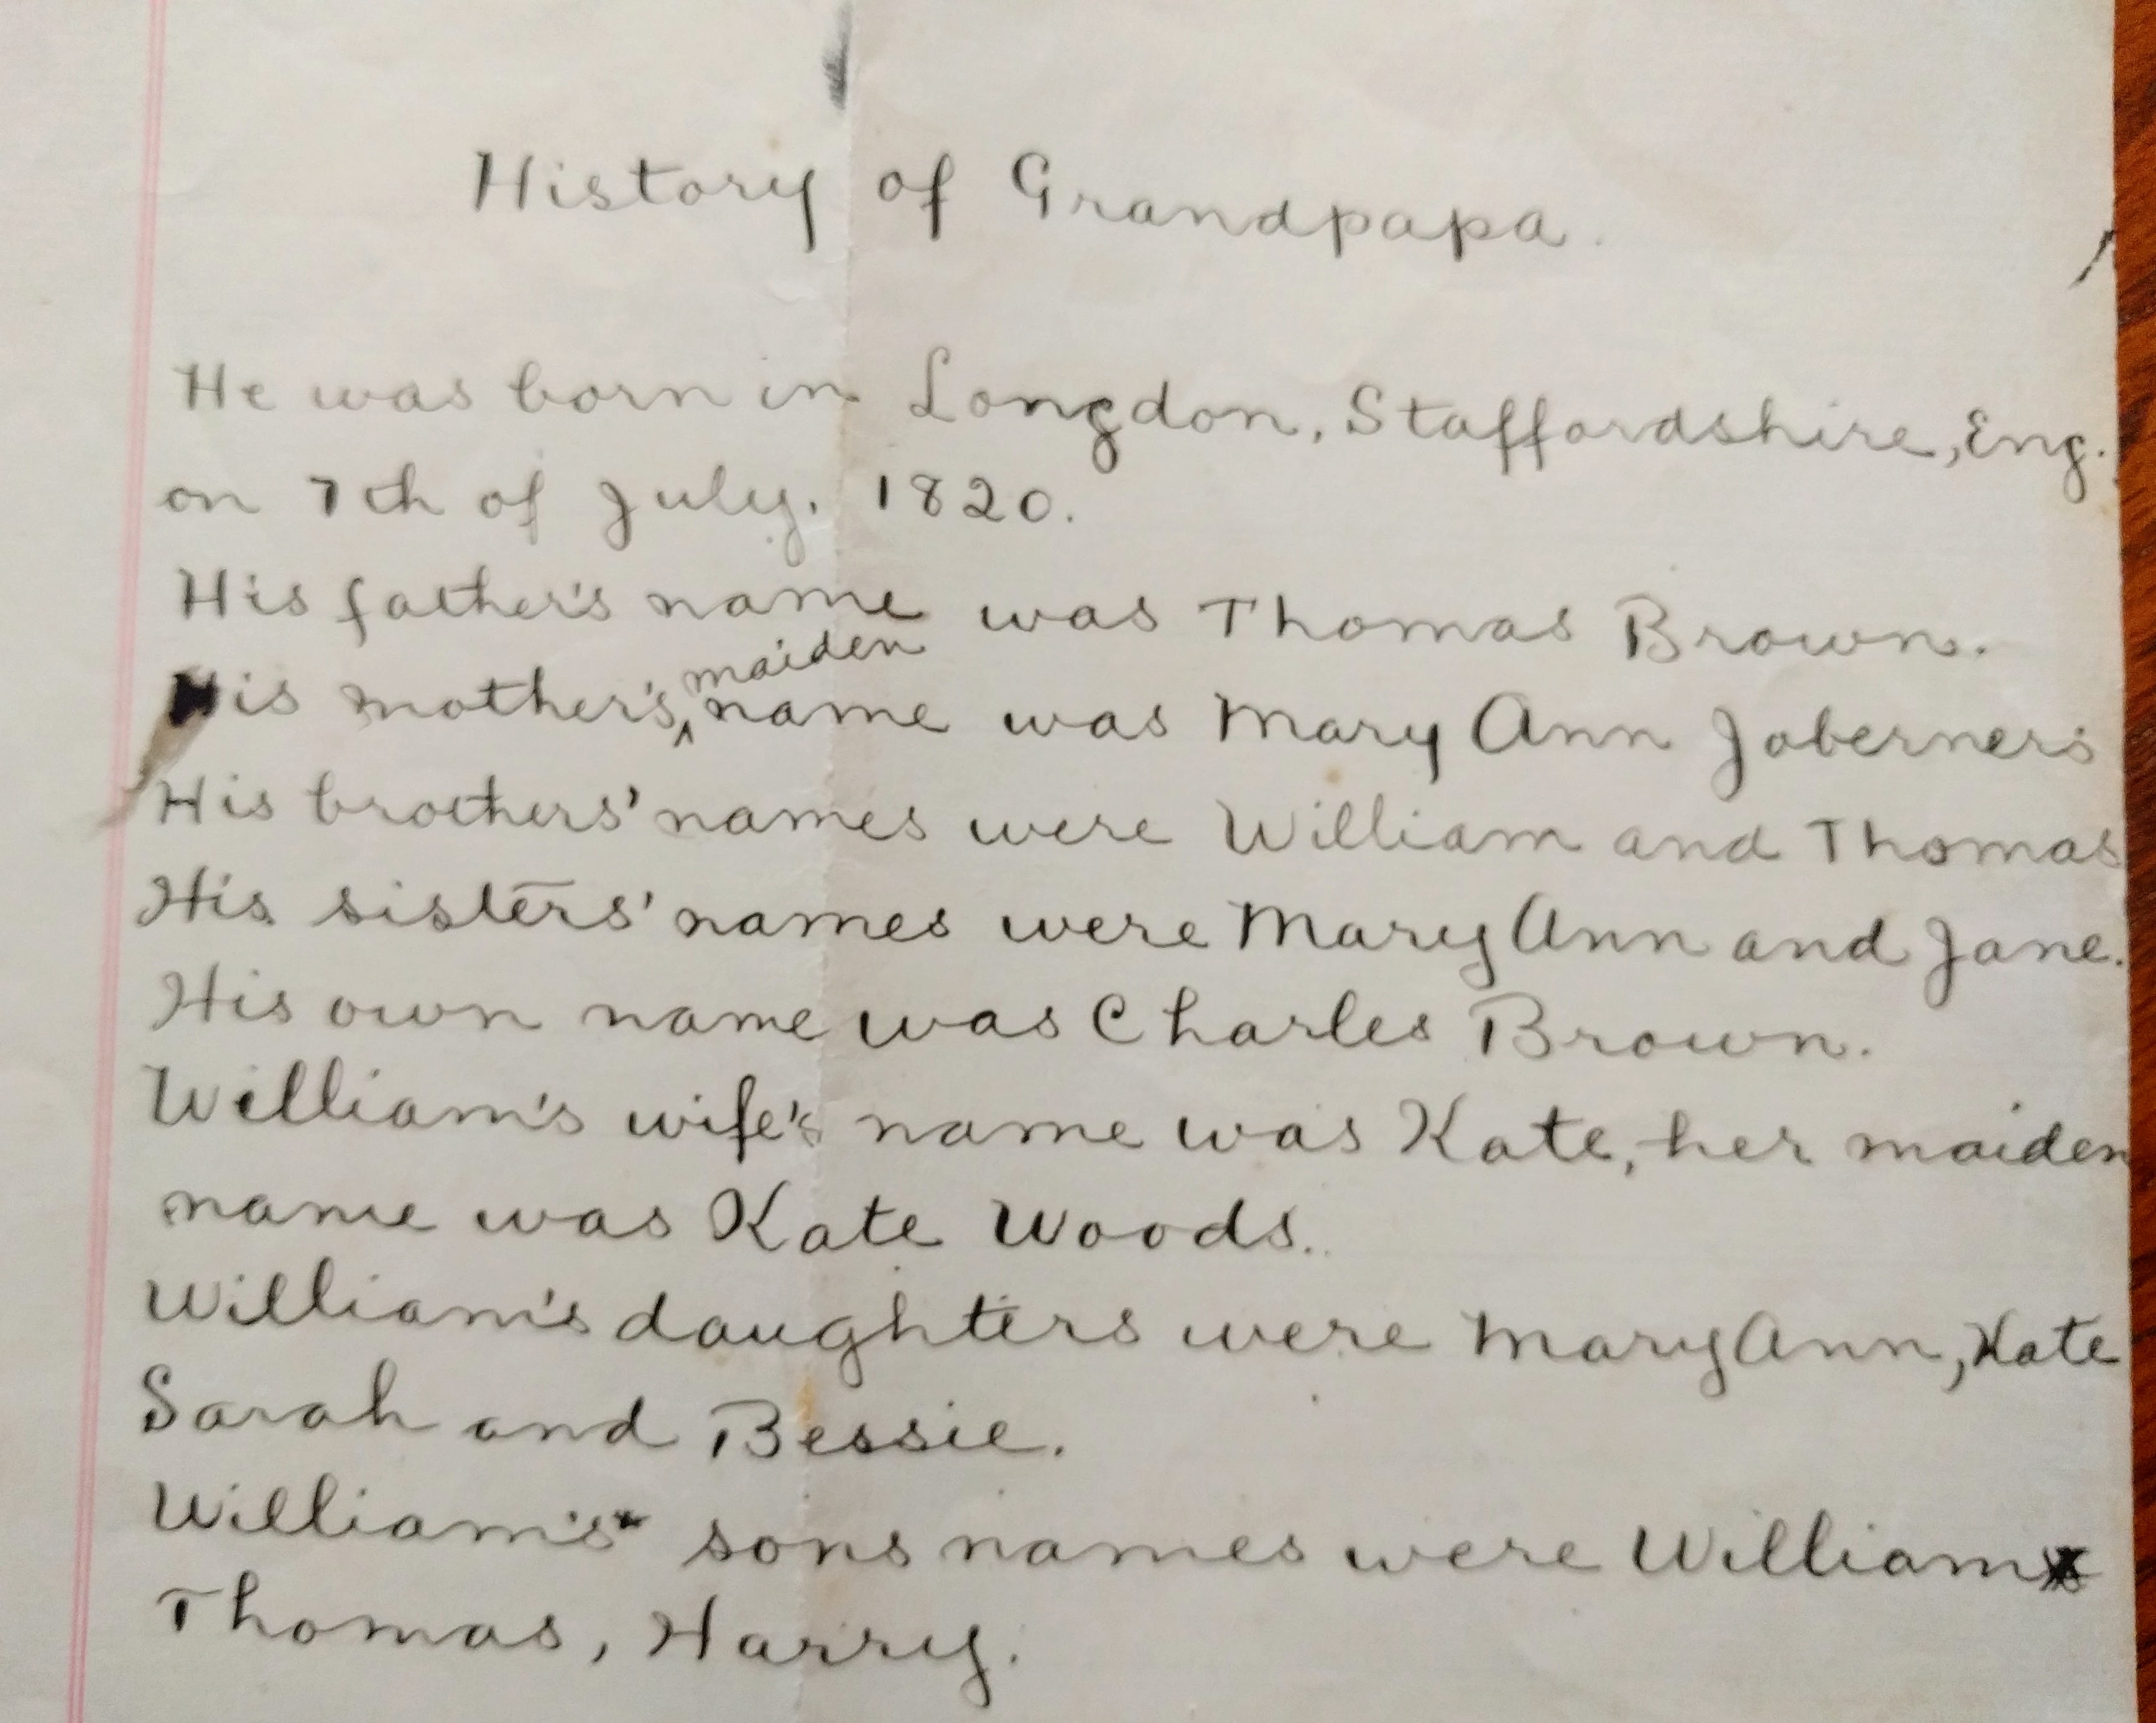 History of Grandpapa.
He was born in Longdon, Staffordshire, Eng.
on 7th of July, 1820.
His father's name was Thomas Brown.
His mother's maiden name was Mary Ann Joberners
His brothers' names were William and Thomas
His sisters' names were Mary Ann and Jane.
His own name was Charles Brown.
William's wife's name was Kate, her maiden
name was Kate Woods.
William's daughters were Mary Ann, Kate
Sarah and Bessie.
William's sons names were William
Thomas, Harry.